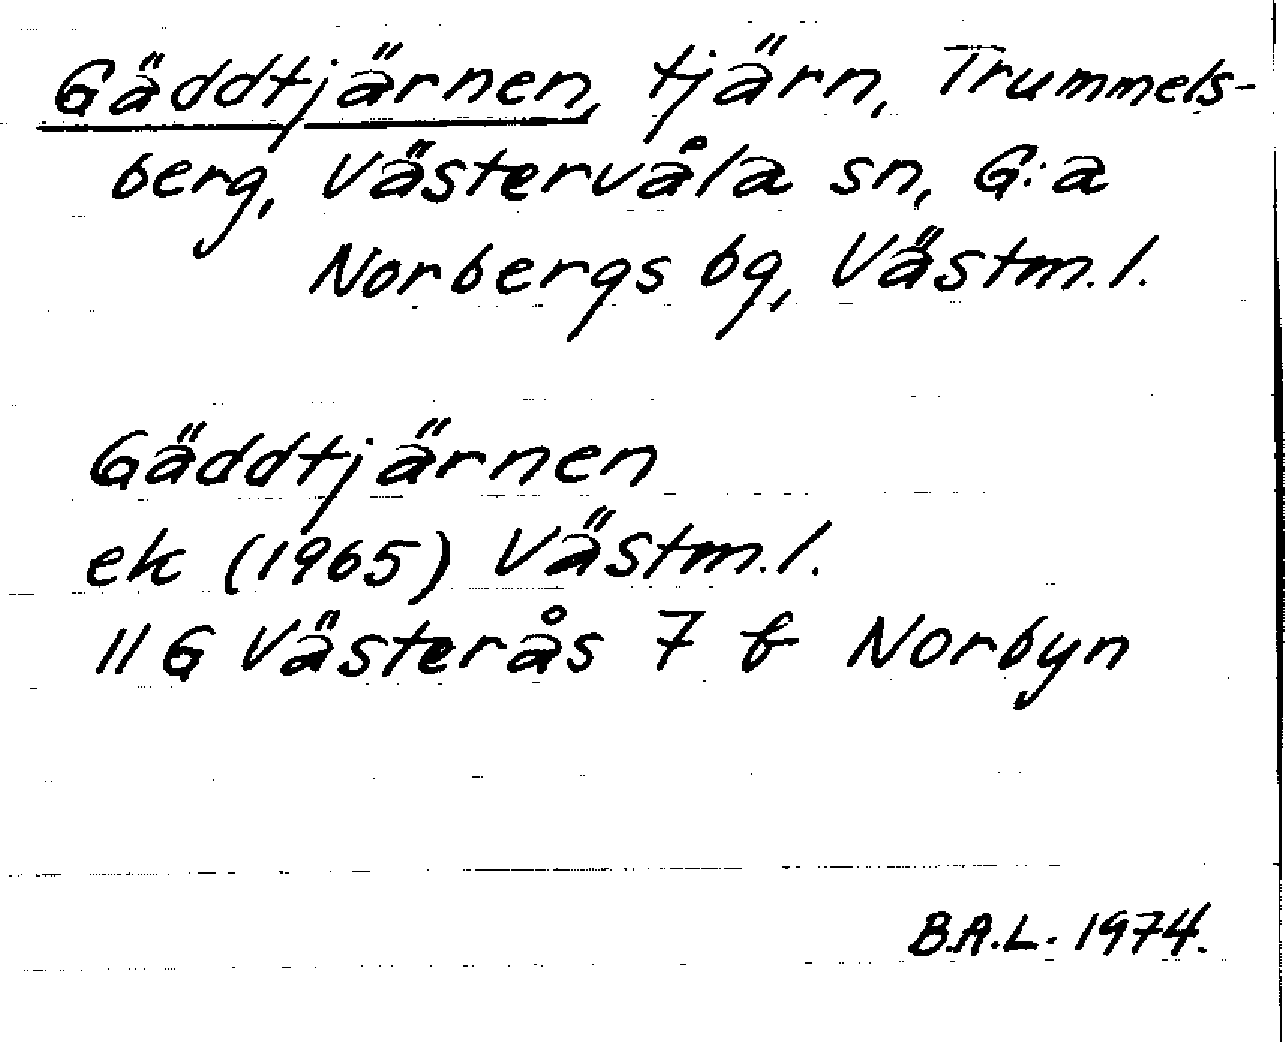 Gäddtjärnen, tjärn, Trummels-
berg, Västervåla sn, G:a
Norbergs bg, Västm.l.
Gäddtjärnen
ek (1965) Västm.l.
11 G Västerås 7 f Norbyn
B.A.L. 1974.